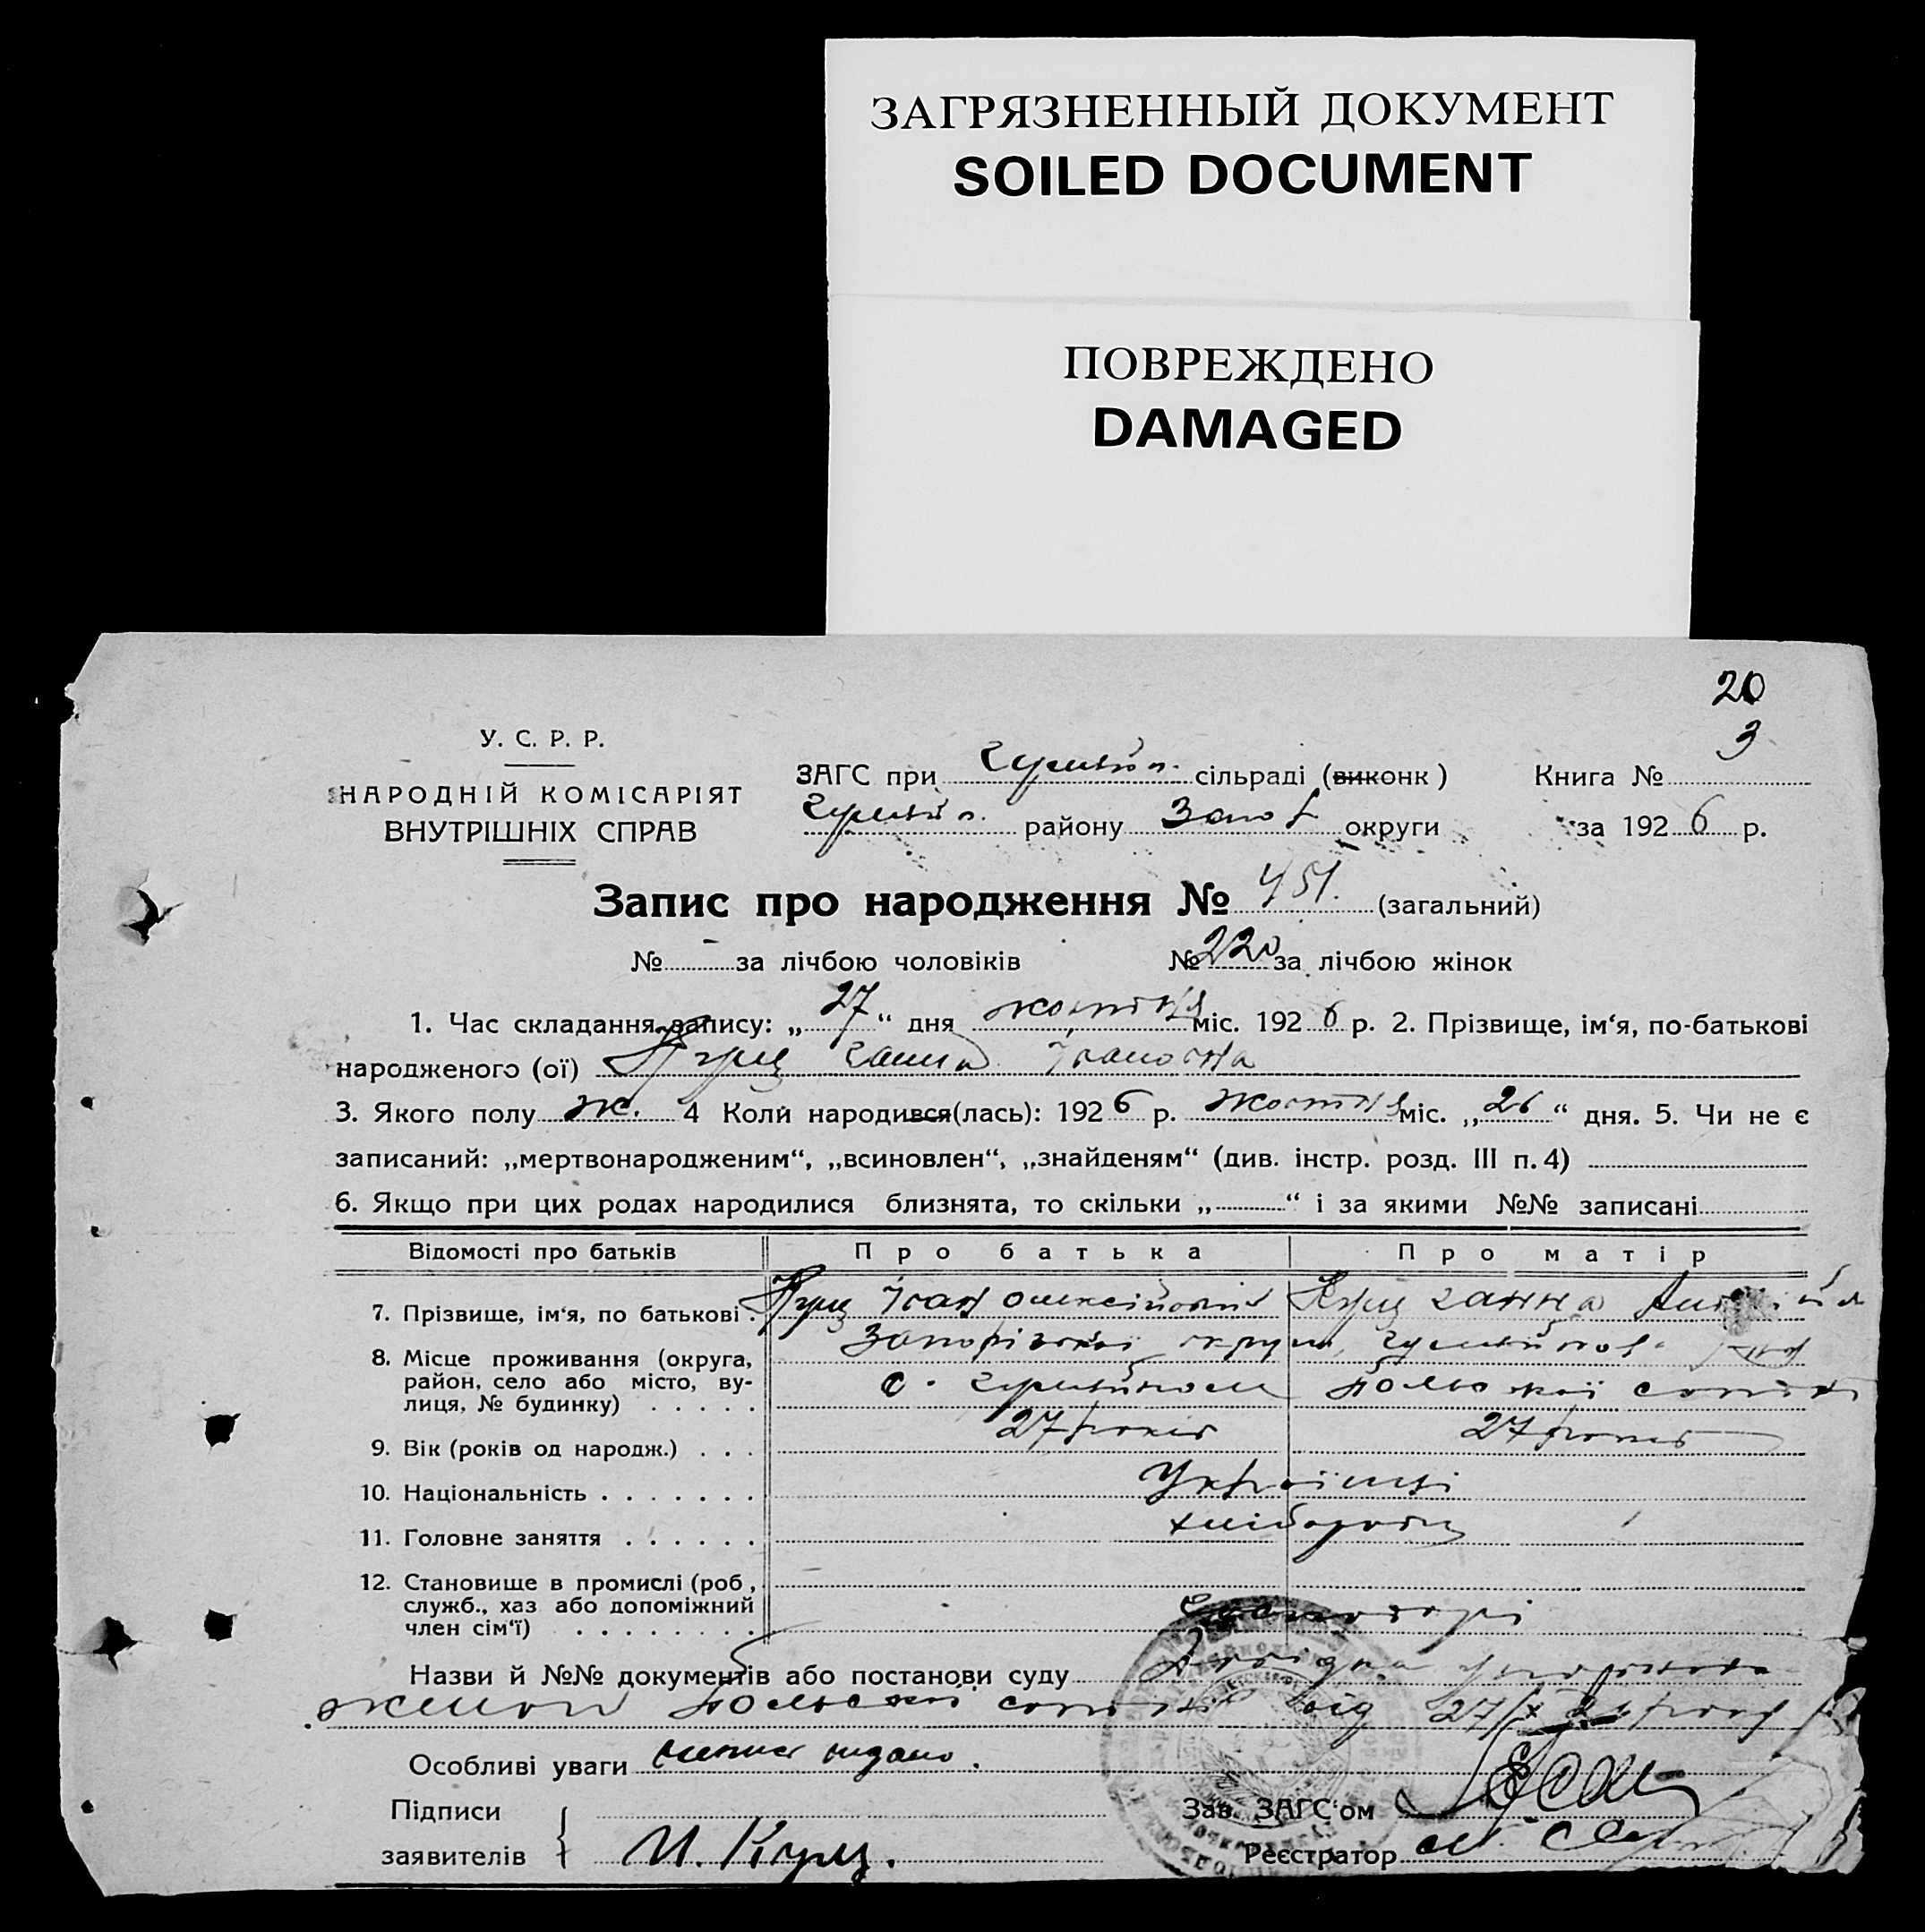 ЗАГРЯЗНЕННЫЙ ДОКУМЕНТ
SOILED DOCUMENT
ПОВРЕЖДЕНО
DAMAGED
20
3
У. С. Р. Р.
НАРОДНІЙ КОМІСАРІЯТ
ВНУТРІШНІХ СПРАВ
ЗАГС при Гуляйп. сільраді (виконк) Книга №
Гуляйп. району Запор округи за 1926 р.
Запис про народження № 451. (загальний)
№ - за лічбою чоловіків № 220 за лічбою жінок
1. Час складання запису: „27“ дня жовтня міс. 1926 р. 2. Прізвище, ім‘я, по-батькові
народженого (ої) Кущ Ганна Івановна
3. Якого полу ж. 4 Коли народився(лась): 1926 р. жовтня міс. „26“ дня. 5. Чи не є
записаний: „мертвонародженим“, „всиновлен“, „знайденям“ (див. інстр. розд. III п. 4)
6. Якщо при цих родах народилися близнята, то скільки „ “ і за якими №№ записані
Відомості про батьків Про батька Про матір
7. Прізвище, ім‘я, по батькові. Кущ Іван Олексійович Кущ Ганна
8. Місце проживання (округа, Запорізької округи, Гуляйпов.
район, село або місто, ву- с. Гуляйполе Польської сотні
лиця, № будинку) . . . . .
9. Вік (років од народж.) . . . 27 років 27 років
10. Національність . . . . . . . Українці
11. Головне заняття . . . . . . хлібороби
12. Становище в промислі (роб,
служб., хаз або допоміжний Господарі
член сім‘ї) . . . . . . . .
Назви й №№ документів або постанови суду Довідка
Польської сотні від 27/X 26 року
Особливі уваги видано.
Підписи Зав. ЗАГС‘ом
заявителів И. Кущ. Реєстратор